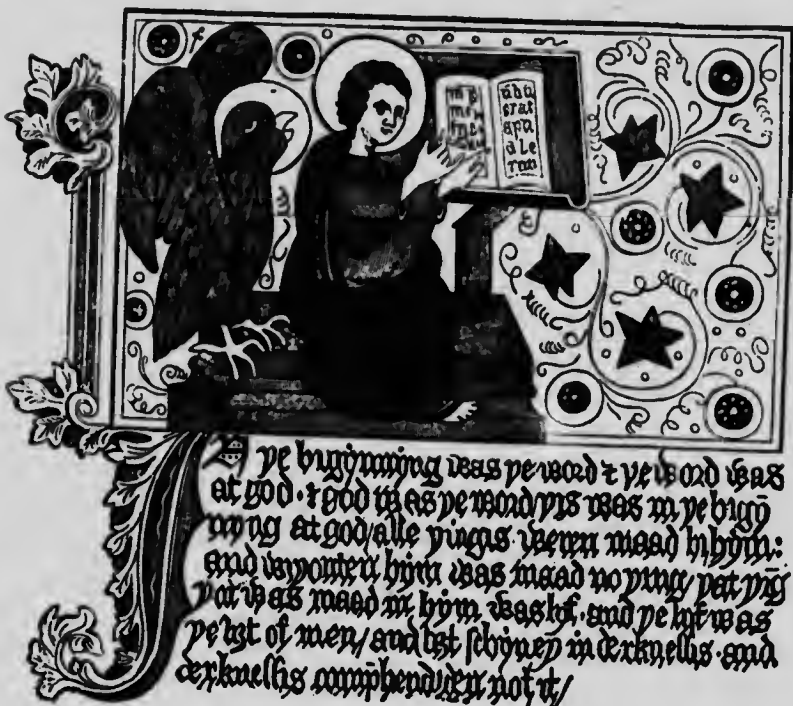 erat
apu
ye bigynnyng was ye word ⁊ ye word was
at god · ⁊ god was ye word/ yis was in ye bigȳ
nyng at god/ alle yingis weren maad bi hym:
and wiyouten hym was maad no ying/ yat yīg
yat was maad in hym was lyf · and ye lyf was
ye liȝt of men/ and liȝt schyney in derknessis · and
derknessis comp̄hendiden not it/